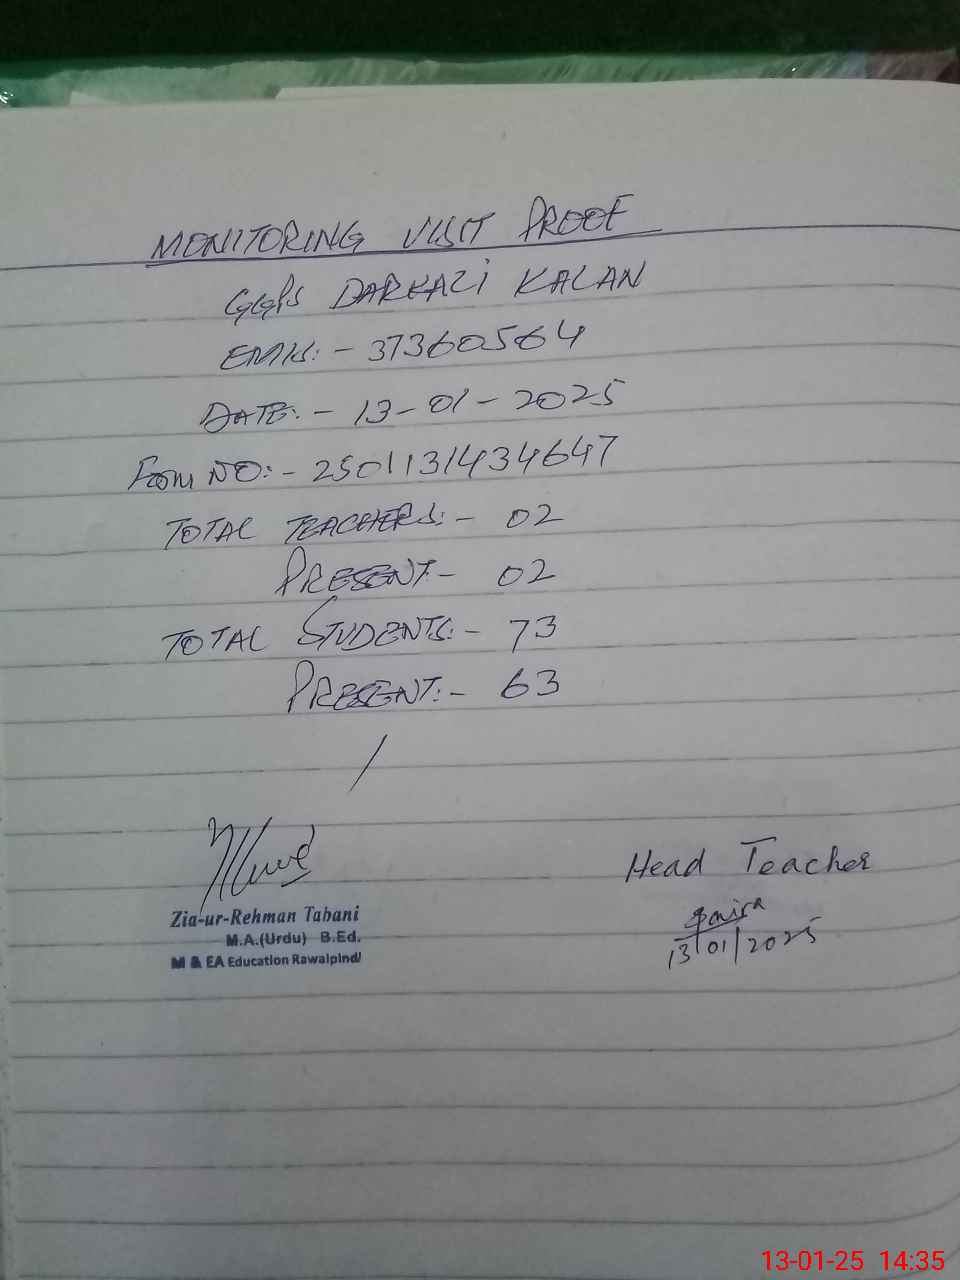 MONITORING VISIT PROOF
GGPS DARKALI KALAN
EMIS:- 37360564
DATE:- 13-01-2025
Form NO:- 2501131434647
TOTAL TEACHERS:- 02
PRESENT- 02
TOTAL STUDENTS:- 73
PRESENT:- 63
/
Zia-ur-Rehman Tabani
M.A.(Urdu) B.Ed.
M & EA Education Rawalpindi
Head Teacher
13/01/2025
13-01-25 14:35